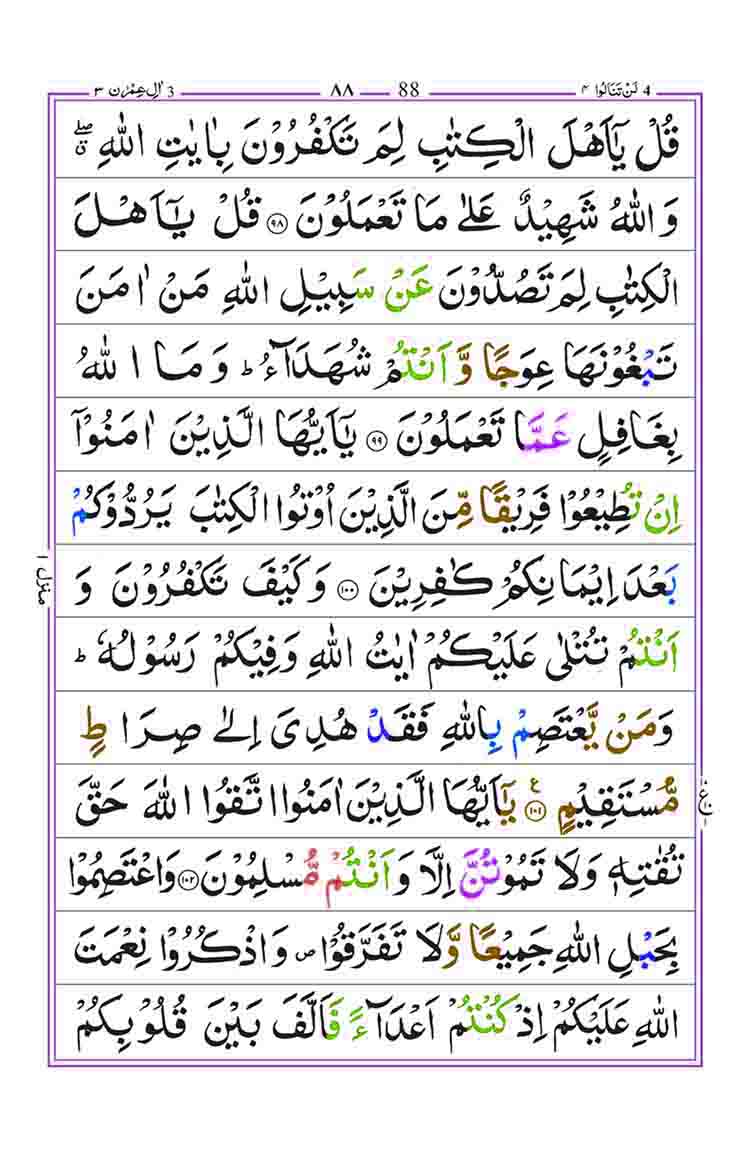 3 اٰلِ عِمْرٰن ٣ ٨٨ 88 4 لَنْ تَنَالُوا ٤
قُلْ يٰۤاَهْلَ الْكِتٰبِ لِمَ تَكْفُرُوْنَ بِاٰيٰتِ اللّٰهِ ۖق
وَ اللّٰهُ شَهِيْدٌ عَلٰى مَا تَعْمَلُوْنَ ۝٩٨ قُلْ يٰۤاَهْلَ
الْكِتٰبِ لِمَ تَصُدُّوْنَ عَنْ سَبِيْلِ اللّٰهِ مَنْ اٰمَنَ
تَبْغُوْنَهَا عِوَجًا وَّ اَنْتُمْ شُهَدَآءُ ؕ وَ مَا اللّٰهُ
بِغَافِلٍ عَمَّا تَعْمَلُوْنَ ۝٩٩ يٰۤاَيُّهَا الَّذِيْنَ اٰمَنُوْۤا
اِنْ تُطِيْعُوْا فَرِيْقًا مِّنَ الَّذِيْنَ اُوْتُوا الْكِتٰبَ يَرُدُّوْكُمْ
بَعْدَ اِيْمَانِكُمْ كٰفِرِيْنَ ۝١٠٠ وَ كَيْفَ تَكْفُرُوْنَ وَ
منزل ١
اَنْتُمْ تُتْلٰى عَلَيْكُمْ اٰيٰتُ اللّٰهِ وَ فِيْكُمْ رَسُوْلُهٗ ؕ
وَ مَنْ يَّعْتَصِمْ بِاللّٰهِ فَقَدْ هُدِىَ اِلٰى صِرَاطٍ
مُّسْتَقِيْمٍ ۝١٠١ ع يٰۤاَيُّهَا الَّذِيْنَ اٰمَنُوا اتَّقُوا اللّٰهَ حَقَّ
تُقٰتِهٖ وَلَا تَمُوْتُنَّ اِلَّا وَ اَنْتُمْ مُّسْلِمُوْنَ ۝١٠٢ وَاعْتَصِمُوْا
بِحَبْلِ اللّٰهِ جَمِيْعًا وَّلَا تَفَرَّقُوْا ص وَاذْكُرُوْا نِعْمَتَ
اللّٰهِ عَلَيْكُمْ اِذْ كُنْتُمْ اَعْدَآءً فَاَلَّفَ بَيْنَ قُلُوْبِكُمْ